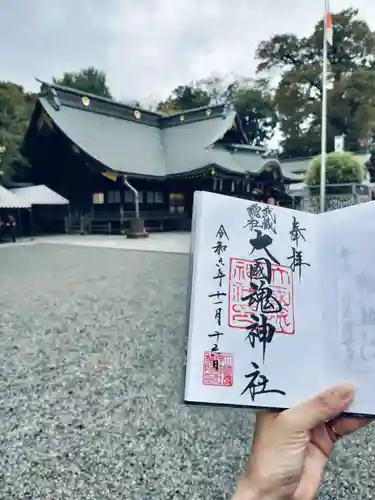 奉拝
武蔵
總社
大國魂神社
令和六年十一月十二日